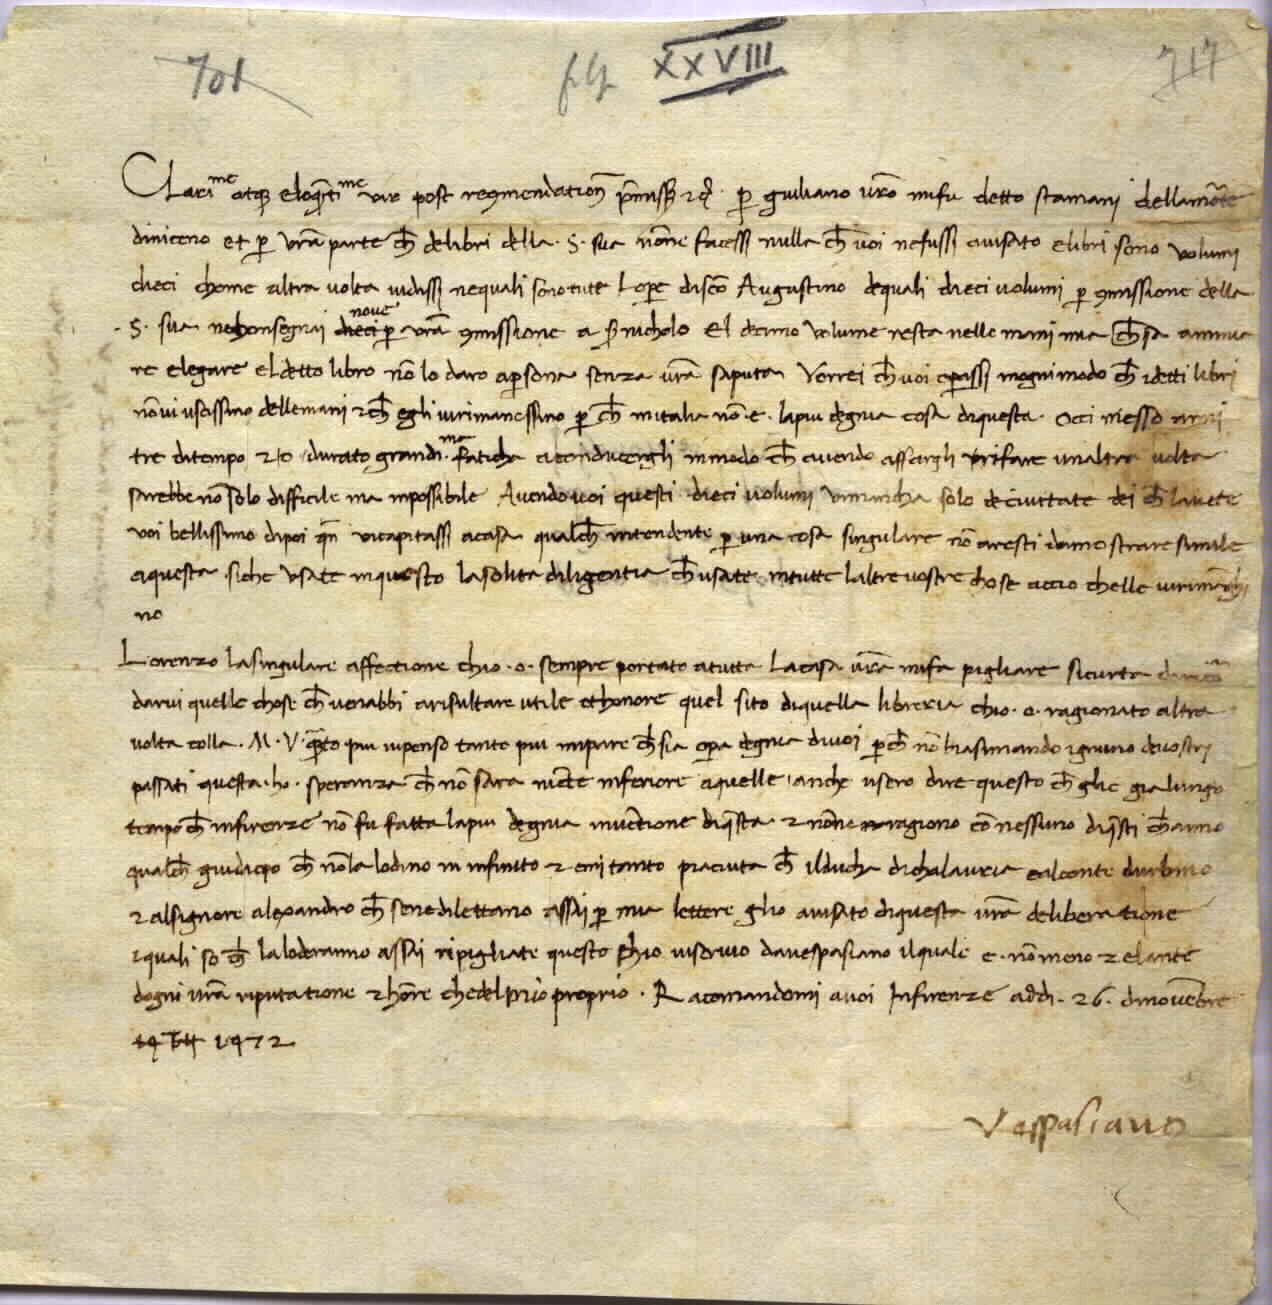 701 XXVIII 717
Clarime atque eloqntime viro post reṣmendation̄ p̄missis ꝛcͣ. ꝑ giuliano vr̄o mifu detto stamani dellamorte
diniceno et ꝑ vrā parte ch̄ delibri della .S. sua nōne facessi nulla ch̄ voi nefussi auisato elibri sono volumi
dieci chome altra volta vidissi nequali sono tute lope disco Augustino dequali dieci volumi ꝑ ꝯmissione della
.S. sua neꝯonsegnai dieci nove ꝑ vrā ꝯmissione a nicholo el decimo volume resta nelle mani mia
re elegare el detto libro nō lo daro aꝑsona senza vrā saputa Vorrei ch̄ voi oꝑassi inogni modo ch̄ idetti libri
nō vi uscissino dellemani ꝛ ch̄ egli virimanessino ꝑ ch̄ initalia nō .e. lapiu degnia cosa diquesta. occi messo anni
tre ditempo ꝛ o durato grandi.ma faticha a conducergli inmodo ch̄ avendo assargli rifare unaltra volta
sarebbe nō solo difficile ma inpossibile Avendo voi questi dieci volumi vimancha solo deciuitate dei ch̄ lavete
voi bellissimo dipoi qn̄ vicapitassi acasa qualch̄ intendente ꝑ una cosa singulare nō aresti damostrare simile
aquesta siche usate inquesto lasolita diligentia ch̄ usate intutte laltre vostre chose accio chelle virimāghi
no
Lorenzo lasingulare affectione chio .o. sempre portato atutta lacasa vrā mifa pigliare sicurta
darvi quelle chose ch̄ venabbi arisultare utile ethonore quel sito diquella libreria chio .o. ragionato altra
volta colla .M.V. quāto piu vipenso tanto piu mipare ch̄ sia oꝑa degnia divoi ꝑch̄ nō biasimando ignuno devostri
passati questa .ho. speranza ch̄ nō sara niēte inferiore aquelle anche usero dire questo ch̄ glie gia lungo
tempo ch̄ infirenze nō fu fatta lapiu degnia inuētione diqsta. ꝛ nōne ragiono cō nessuno diqsti ch̄anno
qualch̄ giudicio ch̄ nōla lodino in infinito ꝛ emi tanto piaciuta ch̄ ilducha dichalauria ealconte durbino
ꝛ alsignore alexandro ch̄ senedilettano assai ꝑ mia lettere glio auisato diquesta vrā deliberatione
iquali so ch̄ laloderanno assai ripigliate questo chio viscrivo davespasiano ilquale e. nō meno zelante
dogni vrā riputatione ꝛ honē chedelprio proprio. Racomandomi avoi Infirenze addi .26. dinovēbre
1472
Vespasiano